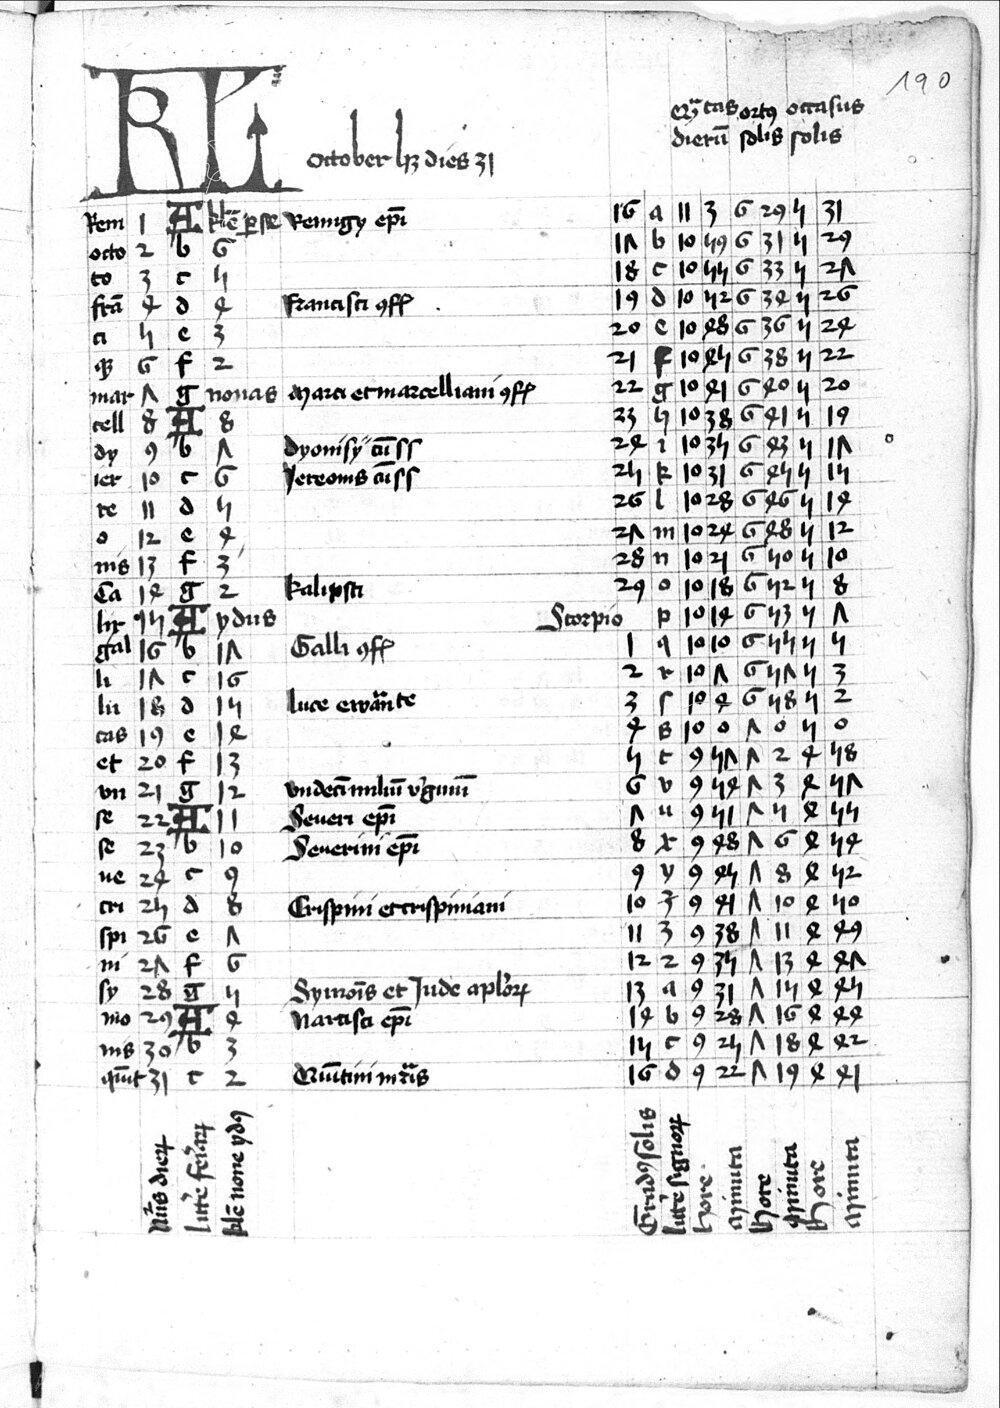 190
KL October hȝ dies 31
Qutas dierū ortꝰ solis occasus solis
Rem 1 A klē ꝑ se Remigy epi 16 a 11 3 6 29 5 31
octo 2 b 6 17 b 10 59 6 31 5 29
to 3 c 5 18 c 10 55 6 33 5 27
frā 4 d 4 Francisci ꝯff 19 d 10 52 6 34 5 26
ci 5 e 3 20 e 10 48 6 36 5 24
6 f 2 21 f 10 45 6 38 5 22
mar 7 g nonas Marci et marcelliani ꝯff 22 g 10 41 6 40 5 20
cell 8 A 8 23 h 10 38 6 41 5 19
dy 9 b 7 Dyonisy cū ss 24 i 10 35 6 43 5 17
ier 10 c 6 Jereonis cū ss 25 k 10 31 6 45 5 15
re 11 d 5 26 l 10 28 6 46 5 14
o 12 e 4 27 m 10 24 6 48 5 12
nis 13 f 3 28 n 10 21 6 50 5 10
Ca 14 g 2 Kalipsti 29 o 10 18 6 52 5 8
lix 15 A ydus Scorpio p 10 14 6 53 5 7
gal 16 b 17 Galli ꝯff 1 q 10 10 6 55 5 5
li 17 c 16 2 r 10 7 6 57 5 3
lu 18 d 15 Luce ewāte 3 ſ 10 4 6 58 5 2
cas 19 e 14 4 s 10 0 7 0 5 0
et 20 f 13 5 t 9 57 7 2 4 58
vn 21 g 12 vndeci miliū v̓ginū 6 v 9 54 7 3 4 57
se 22 A 11 Severi epi 7 u 9 51 7 5 4 55
se 23 b 10 Severini epi 8 x 9 48 7 6 4 54
ue 24 c 9 9 y 9 45 7 8 4 52
cri 25 d 8 Crispini et crispiniani 10 z 9 41 7 10 4 50
spi 26 e 7 11 3 9 38 7 11 4 49
ni 27 f 6 12 2 9 35 7 13 4 47
sy 28 g 5 Symois et Jude aplorꝝ 13 a 9 31 7 15 4 45
mo 29 A 4 Narcisci epi 14 b 9 28 7 16 4 44
nis 30 b 3 15 c 9 25 7 18 4 42
quīt 31 c 2 Quītini mr̄is 16 d 9 22 7 19 4 41
Nūs dieꝝ
litte feriaꝝ
kle none ydꝰ
Gradꝰ solis
litte signoꝝ
hore
minuta
hore
minuta
hore
minuta